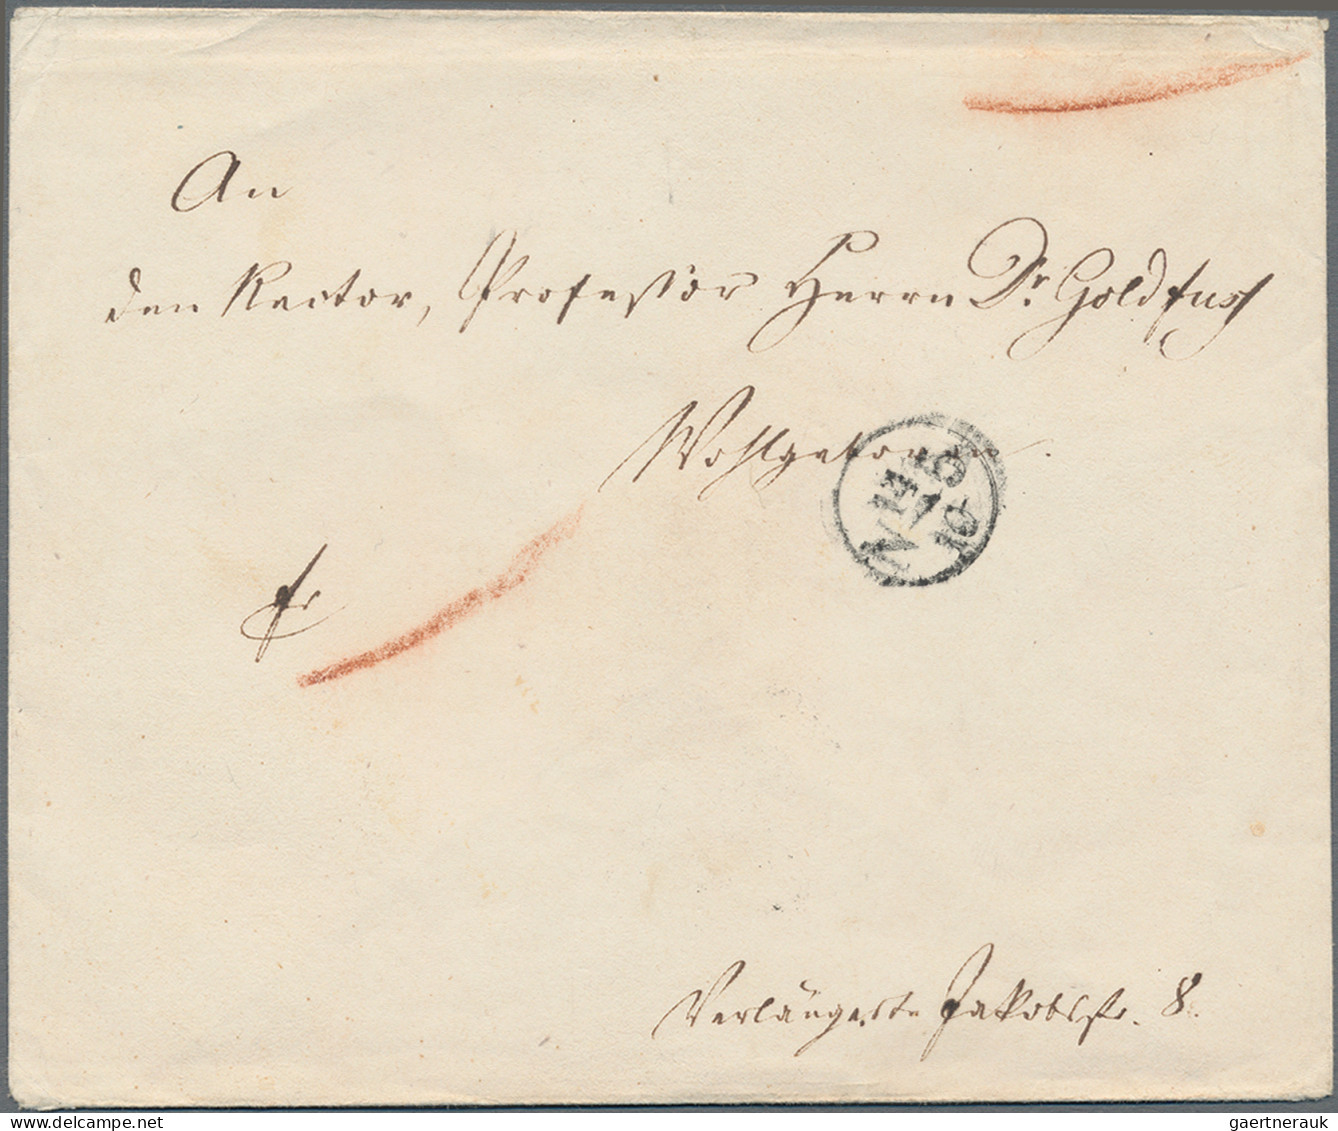 An
den Rector, Professor Herrn Dr. Goldfuss
Wohlgeboren.
fr
Verlängerte Jakobsstr. 8.
gaertnerauk